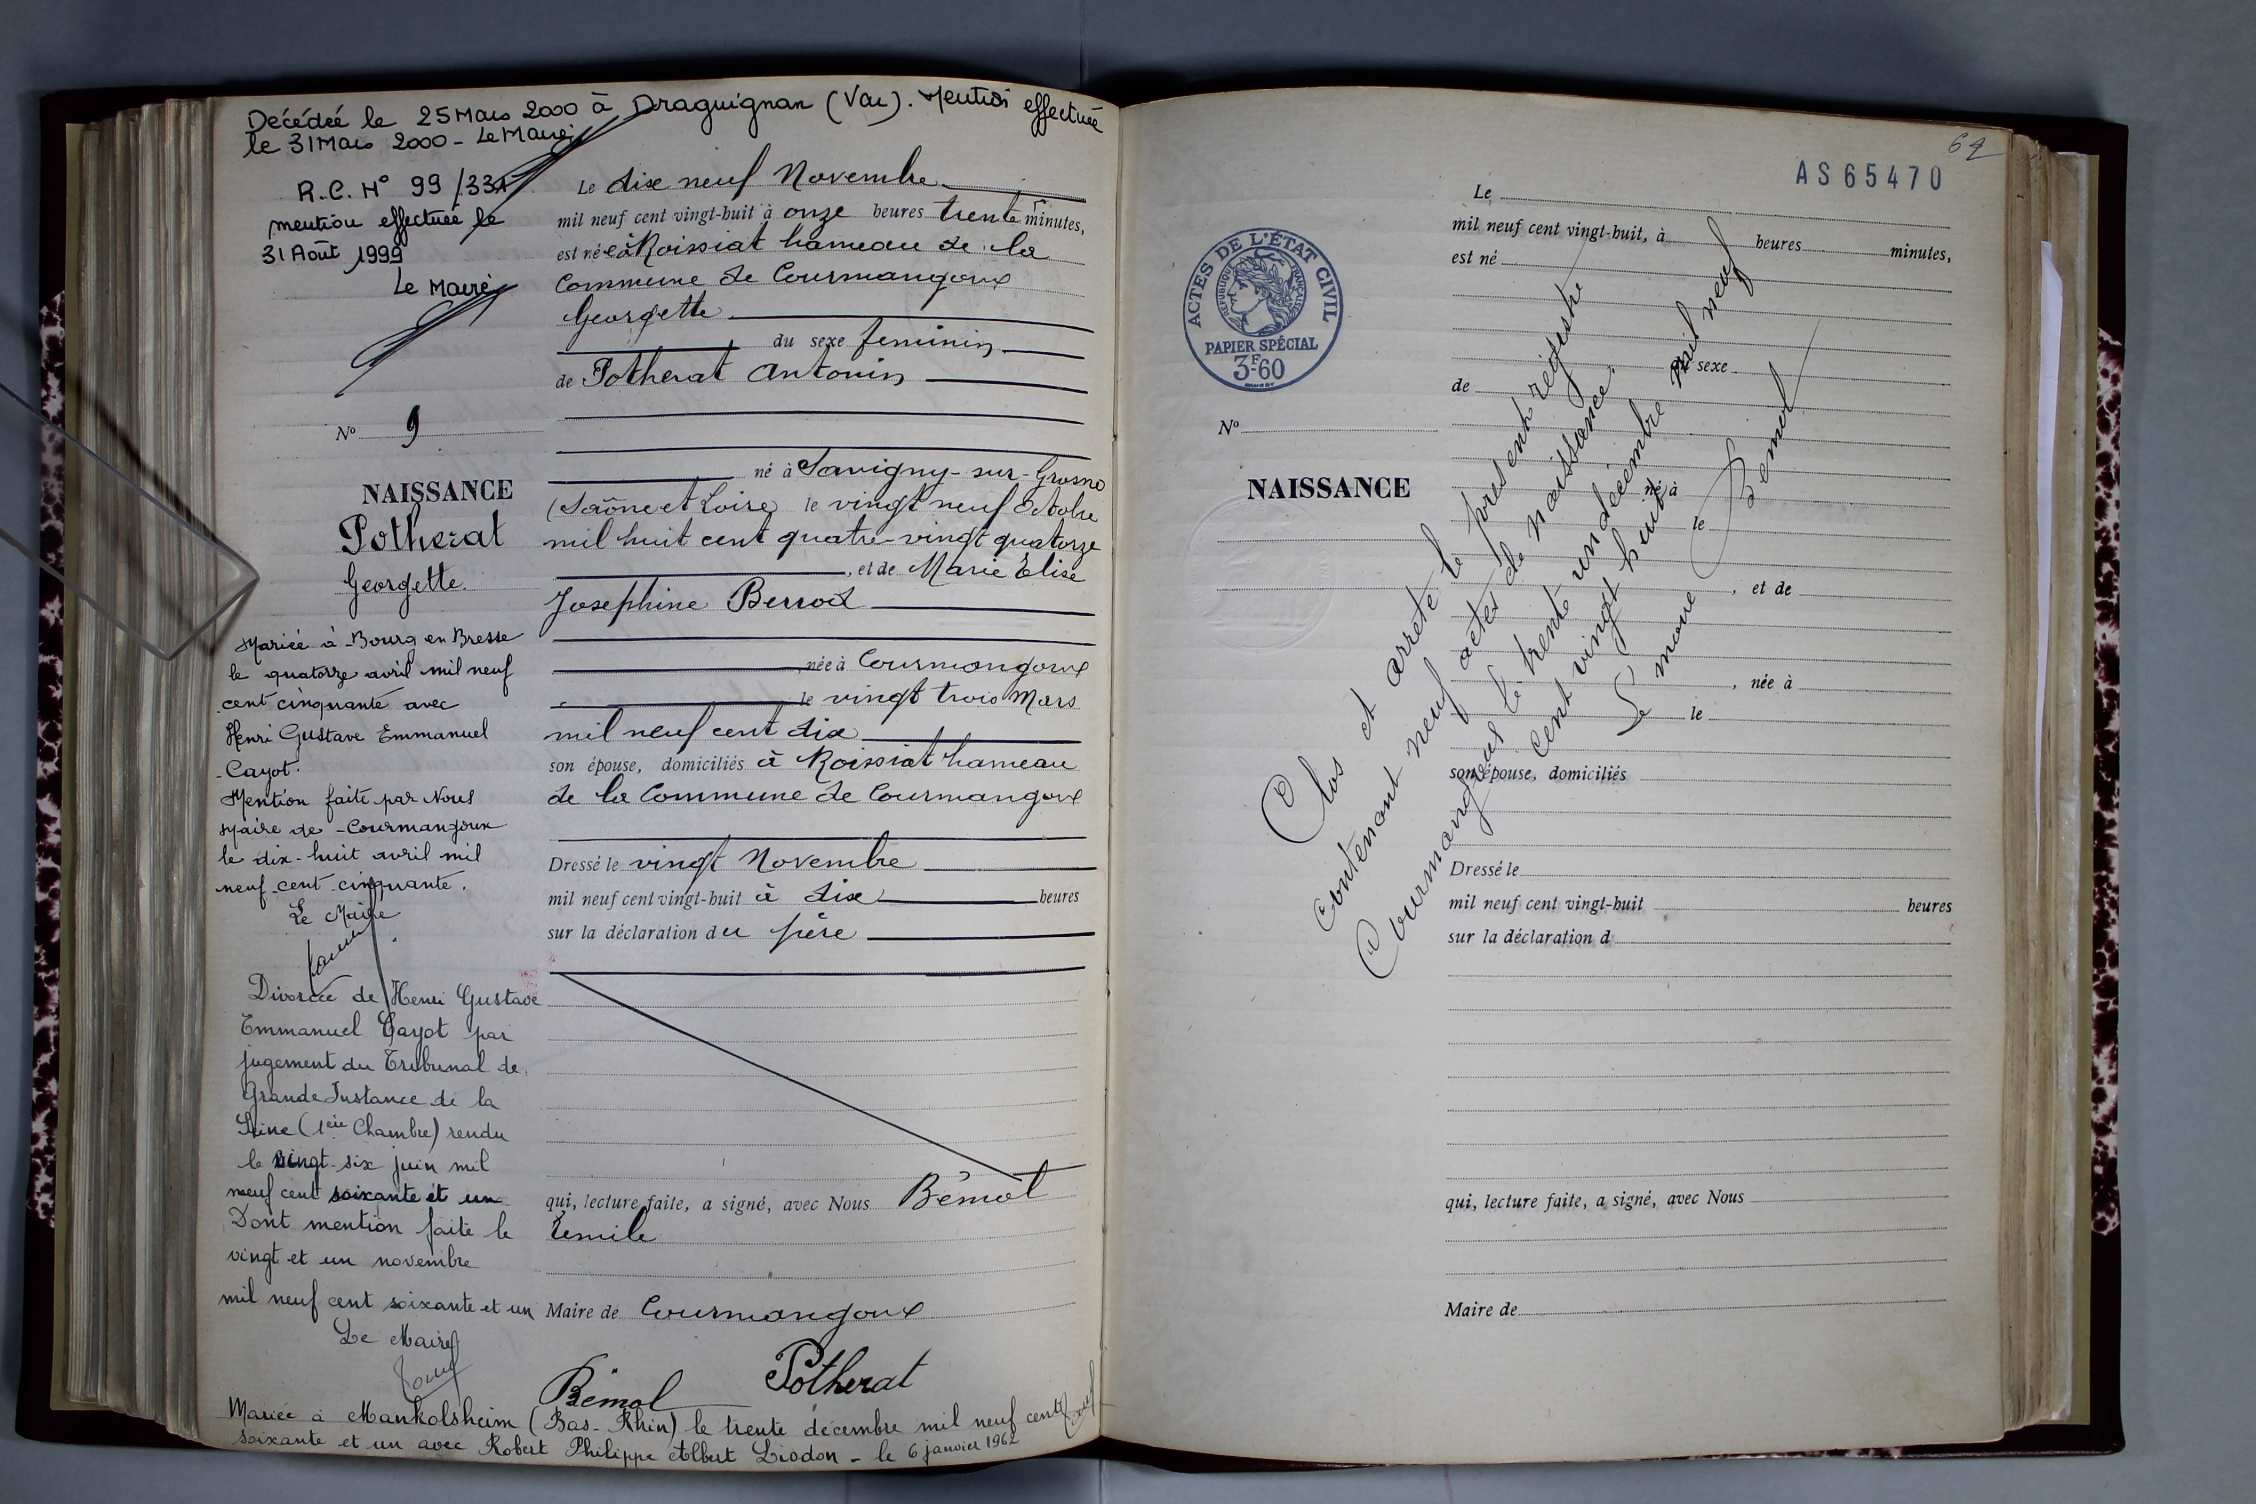 Décédée le 25 Mars 2000 à Draguignan (Var). Mention effectuée
le 31 Mars 2000 - Le Maire
R.C. N° 99/331
mention effectuée le
31 Août 1999
Le Maire
N° 9
NAISSANCE
Potherat
Georgette.
Mariée à Bourg en Bresse
le quatorze avril mil neuf
cent cinquante avec
Henri Gustave Emmanuel
Cayot.
Mention faite par Nous
Maire de Courmangoux
le dix-huit avril mil
neuf cent cinquante.
Le Maire
Divorcée de Henri Gustave
Emmanuel Cayot par
jugement du Tribunal de
Grande Instance de la
Seine (1ère Chambre) rendu
le vingt-six juin mil
neuf cent soixante et un
Dont mention faite le
vingt et un novembre
mil neuf cent soixante et un
Le Maire
Le dix neuf Novembre
mil neuf cent vingt-huit à onze heures trente minutes,
est née à Roissiat hameau de la
Commune de Courmangoux
Georgette
du sexe feminin
de Potherat Antonin
né à Savigny-sur-Grosne
(Saône et Loire) le vingt neuf Octobre
mil huit cent quatre-vingt quatorze
, et de Marie Elise
Josephine Berrod
, née à Courmangoux
le vingt trois Mars
mil neuf cent dix
son épouse, domiciliés à Roissiat hameau
de la Commune de Courmangoux
Dressé le vingt Novembre
mil neuf cent vingt-huit à dix heures
sur la déclaration du père
qui, lecture faite, a signé, avec Nous Bémol
Emile
Maire de Courmangoux
Bémol
Potherat
Mariée à Mankolsheim (Bas-Rhin) le trente décembre mil neuf cent
soixante et un avec Robert Philippe Albert Liodon - le 6 janvier 1962
AS65470
ACTES DE L'ÉTAT CIVIL
RÉPUBLIQUE FRANÇAISE
PAPIER SPÉCIAL
3F.60
N°
NAISSANCE
Le
mil neuf cent vingt-huit, à heures minutes,
est né
du sexe
de
né à
le
, et de
, née à
le
son épouse, domiciliés
Dressé le
mil neuf cent vingt-huit heures
sur la déclaration d
qui, lecture faite, a signé, avec Nous
Maire de
Clos et arrêté le présent régistre
contenant neuf actes de naissance.
Courmangoux le trente un décembre mil neuf
cent vingt huit
Le maire Bémol